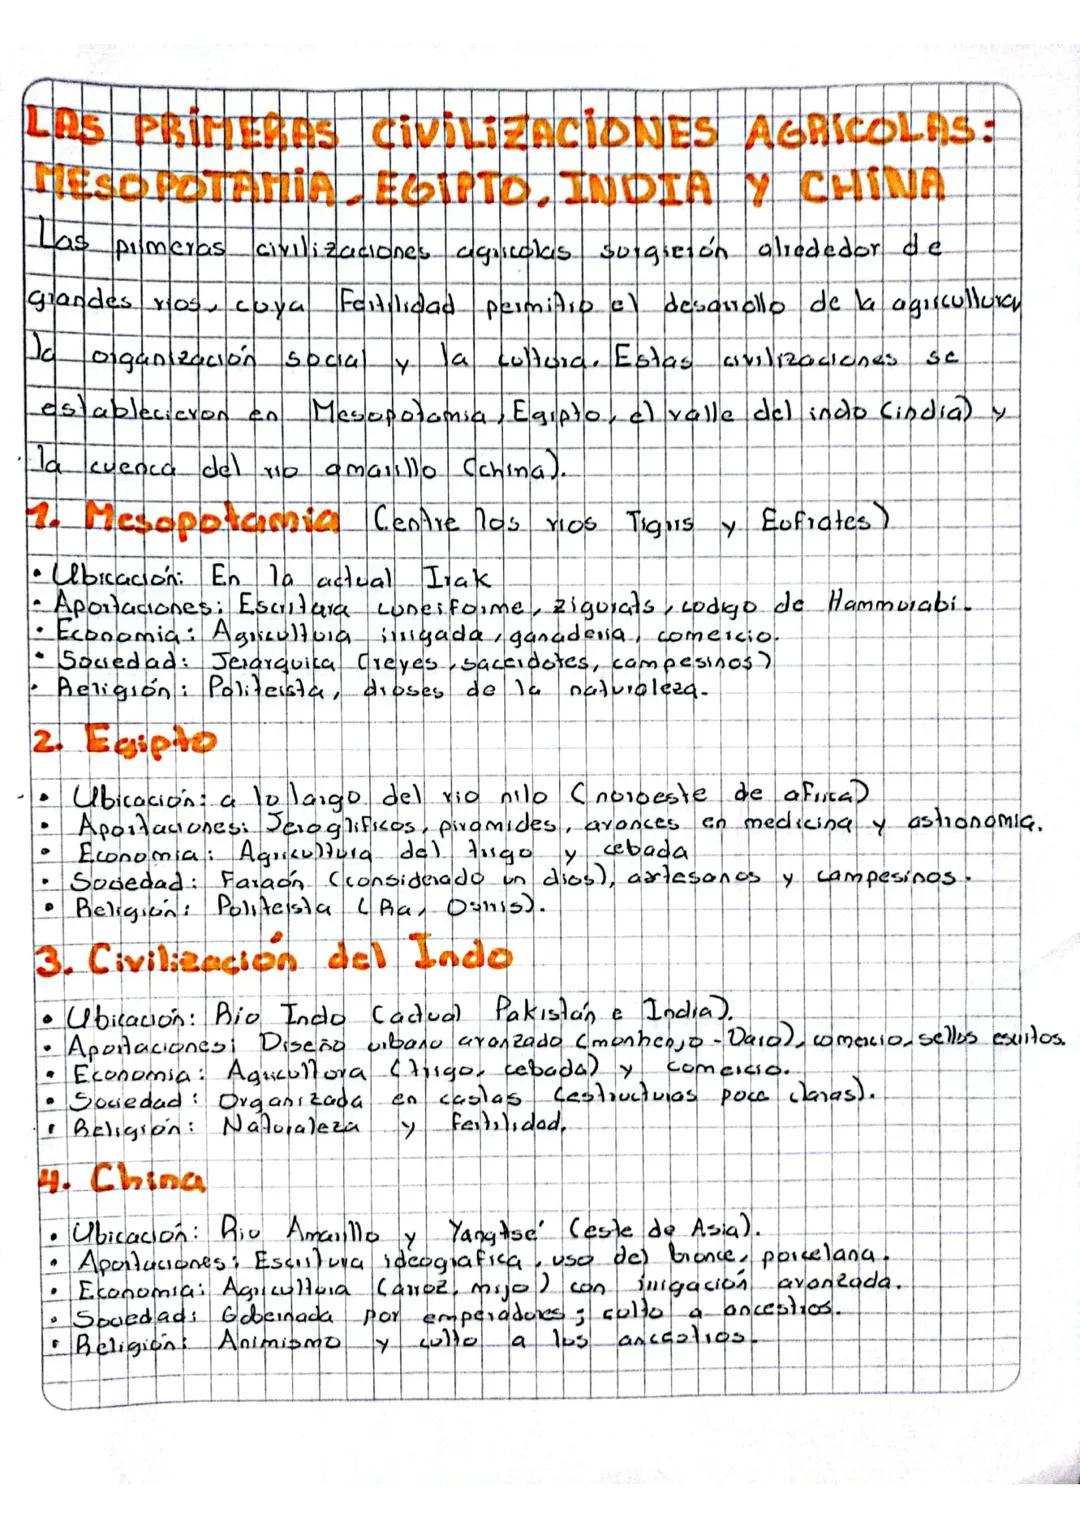 LAS PRIMERAS CIVILIZACIONES AGRICOLAS:
MESOPOTAMIA, EGIPTO, INDIA Y CHINA
Las primeras civilizaciones agricolas surgierón alrededor de
grandes rios, cuya Fertilidad permitio el desarrollo de la agricultura
la organización social y la cultura. Estas civilizaciones se
establecieron en Mesopotamia, Egipto, el valle del indo (india) y
la cuenca del rio amarillo (china).
1. Mesopotamia (entre los rios Tigris y Eufrates)
• Ubicación: En la actual Irak
• Aportaciones: Escritura cuneiforme, zigurats, codigo de Hammurabi.
• Economia: Agricultura irrigada, ganaderia, comercio.
• Sociedad: Jerarquica (reyes, sacerdotes, campesinos)
• Religión: Politeista, dioses de la naturaleza.
2. Egipto
• Ubicación: a lo largo del rio nilo (noroeste de africa)
• Aportaciones: Jeroglificos, piramides, avances en medicina y astronomia.
• Economia: Agricultura del trigo y cebada
• Sociedad: Faraón (considerado un dios), artesanos y campesinos.
• Religión: Politeista (Ra, Osiris).
3. Civilización del Indo
• Ubicación: Rio Indo (actual Pakistán e India).
• Aportaciones: Diseño urbano avanzado (monhenjo-Daro), comercio, sellos escritos.
• Economia: Agricultura (trigo, cebada) y comercio.
• Sociedad: Organizada en castas (estructuras poco claras).
• Religión: Naturaleza y Fertilidad.
4. China
• Ubicación: Rio Amarillo y Yangtsé (este de Asia).
• Aportaciones: Escritura ideografica, uso del bronce, porcelana.
• Economia: Agricultura (arroz, mijo) con irrigación avanzada.
• Sociedad: Gobernada por emperadores; culto a ancestros.
• Religión: Animismo y culto a los ancestros.